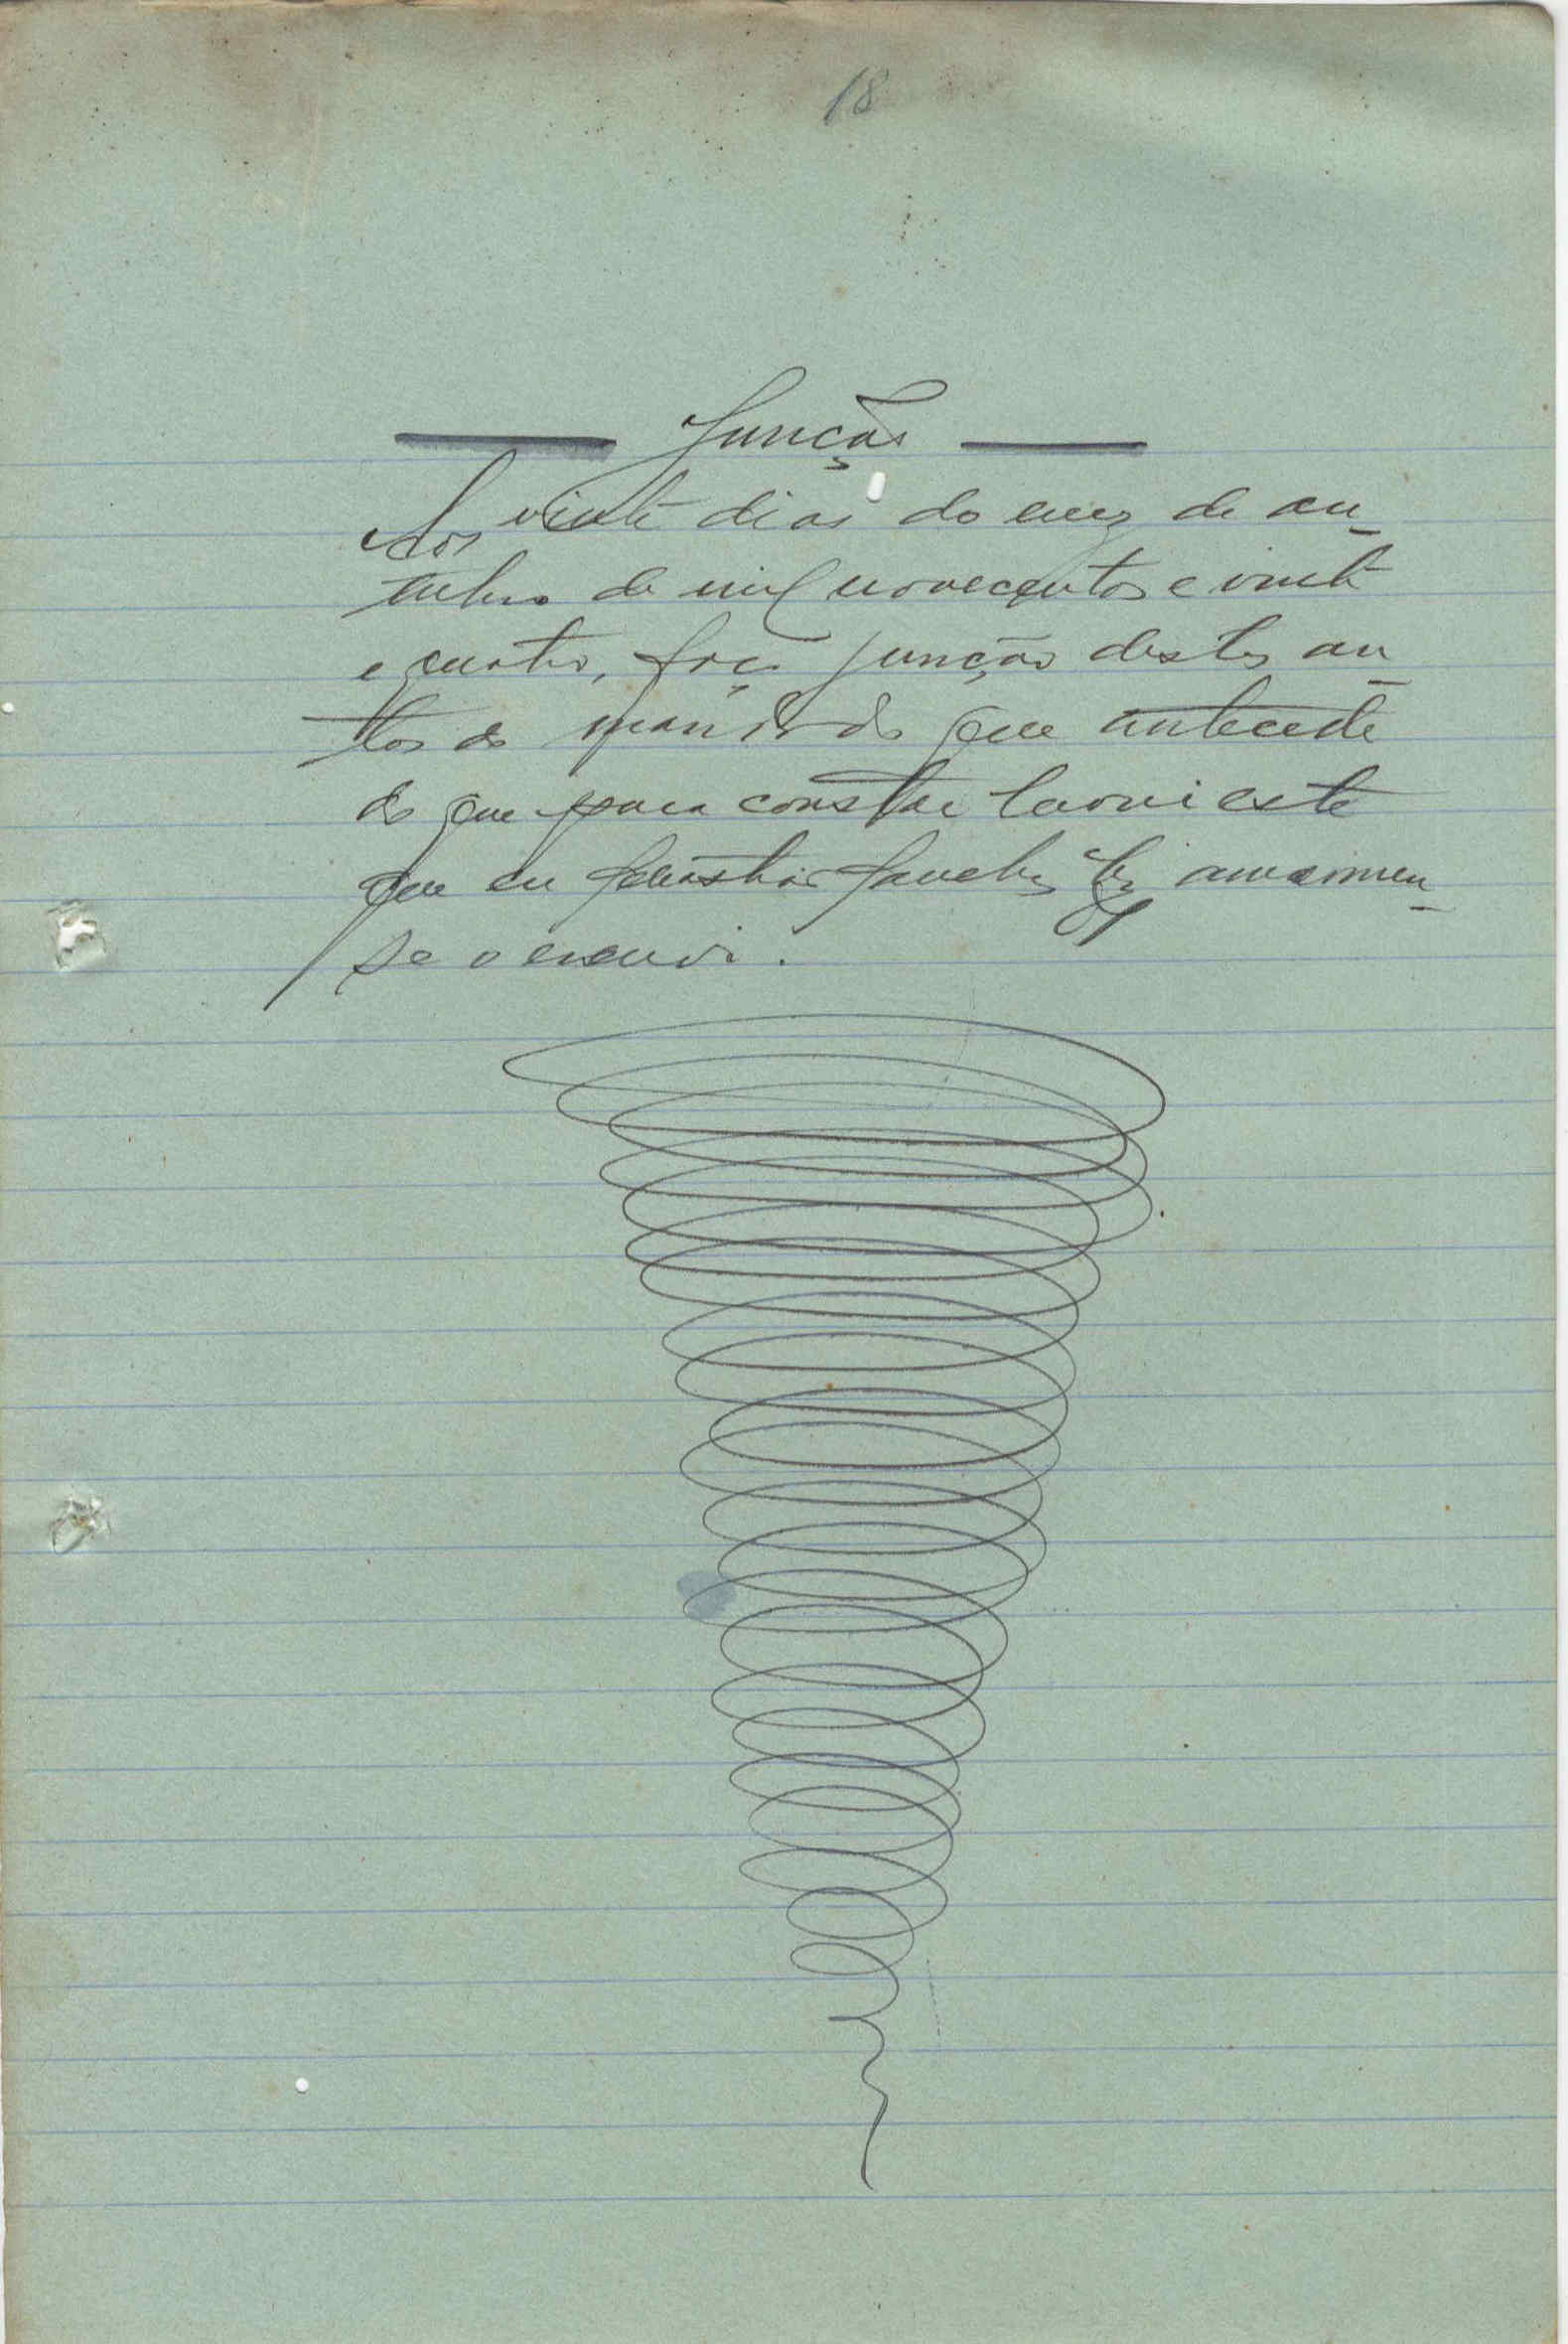 18
Juncção
Aos vinte dias do mez de ou-
tubro de mil novecentos e vinte
e quatro, faço juncção destes au-
tos do mandado que antecede
do que para constar lavrei este
que eu Sebastião Sanches
se o escrevi.